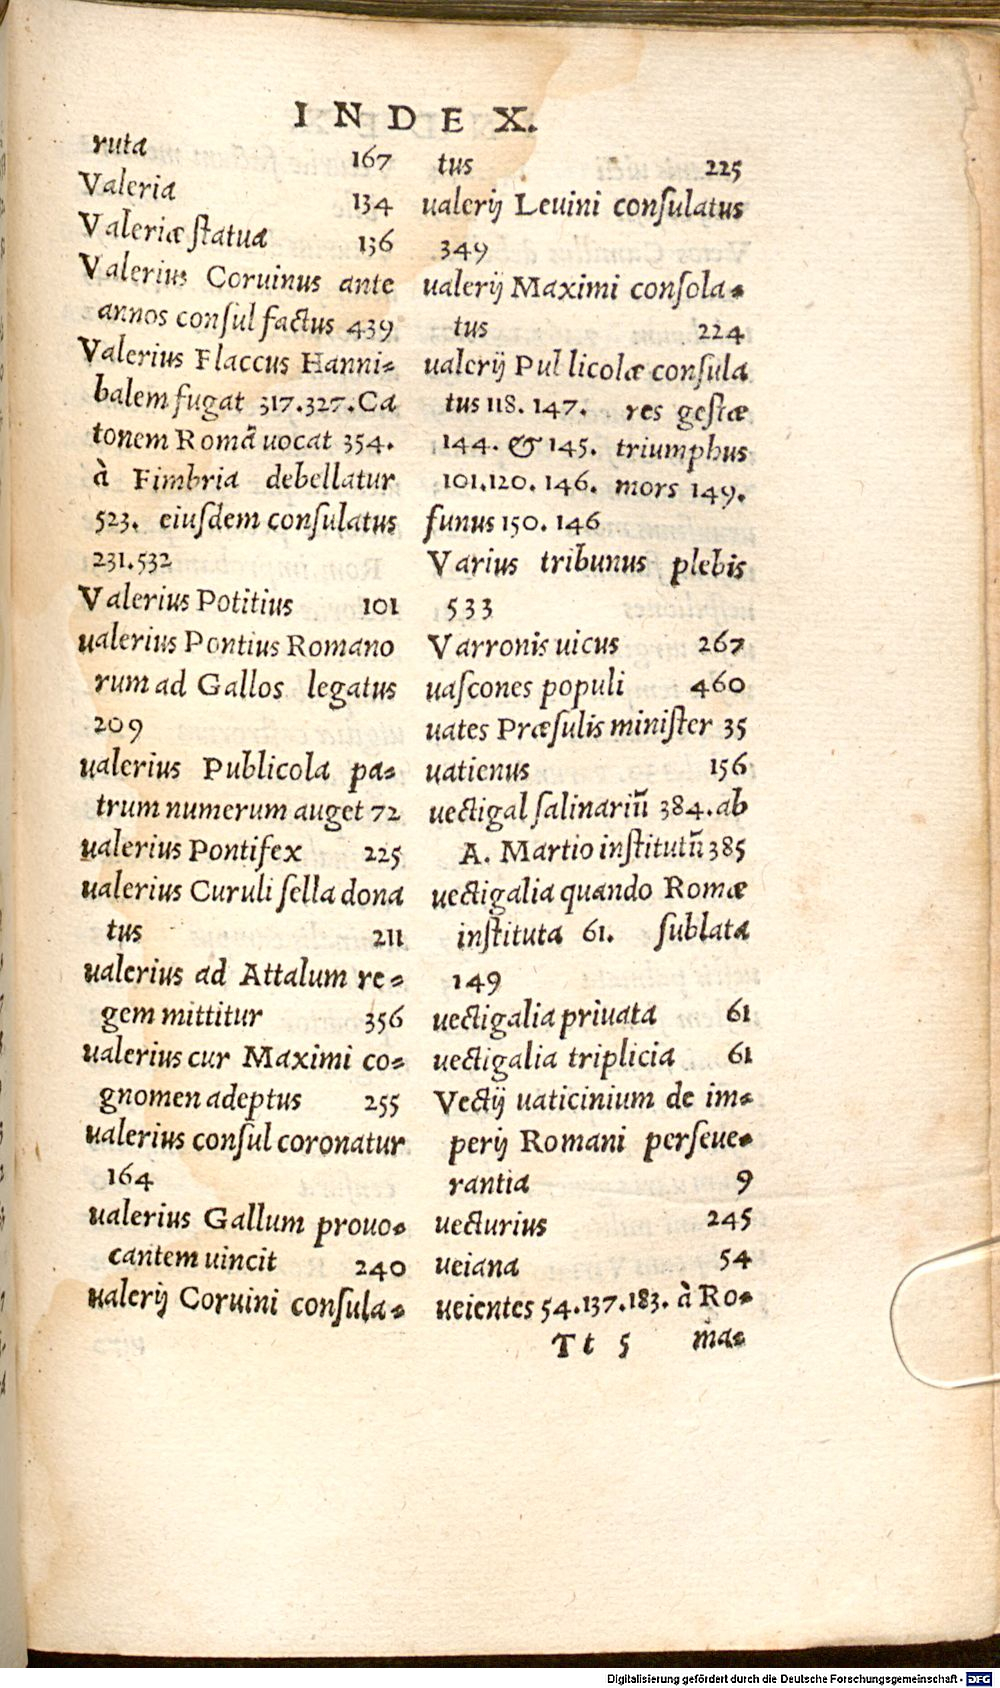 INDEX.
ruta 167
Valeria 134
Valeriæ ſtatua 136
Valerius Coruinus ante
annos conſul factus 439
Valerius Flaccus Hanni-
balem fugat 317.327.Ca
tonem Romã uocat 354.
à Fimbria debellatur
523. eiuſdem conſulatus
231.532
Valerius Potitius 101
ualerius Pontius Romano
rum ad Gallos legatus
209
ualerius Publicola pa-
trum numerum auget 72
ualerius Pontifex 225
ualerius Curuli ſella dona
tus 211
ualerius ad Attalum re-
gem mittitur 356
ualerius cur Maximi co-
gnomen adeptus 255
ualerius conſul coronatur
164
ualerius Gallum prouo-
cantem uincit 240
ualerij Coruini conſula-
tus 225
ualerij Leuini conſulatus
349
ualerij Maximi conſola-
tus 224
ualerij Pullicolæ conſula
tus 118. 147. res geſtæ
144. & 145. triumphus
101.120. 146. mors 149.
funus 150. 146
Varius tribunus plebis
533
Varronis uicus 267
uaſcones populi 460
uates Præſulis miniſter 35
uatienus 156
uectigal ſalinariũ 384.ab
A. Martio inſtitutũ 385
uectigalia quando Romæ
inſtituta 61. ſublata
149
uectigalia priuata 61
uectigalia triplicia 61
Vectij uaticinium de im-
perij Romani perſeue-
rantia 9
uecturius 245
ueiana 54
ueientes 54.137.183. à Ro-
Tt 5 ma-
Digitalisierung gefördert durch die Deutsche Forschungsgemeinschaft - DFG